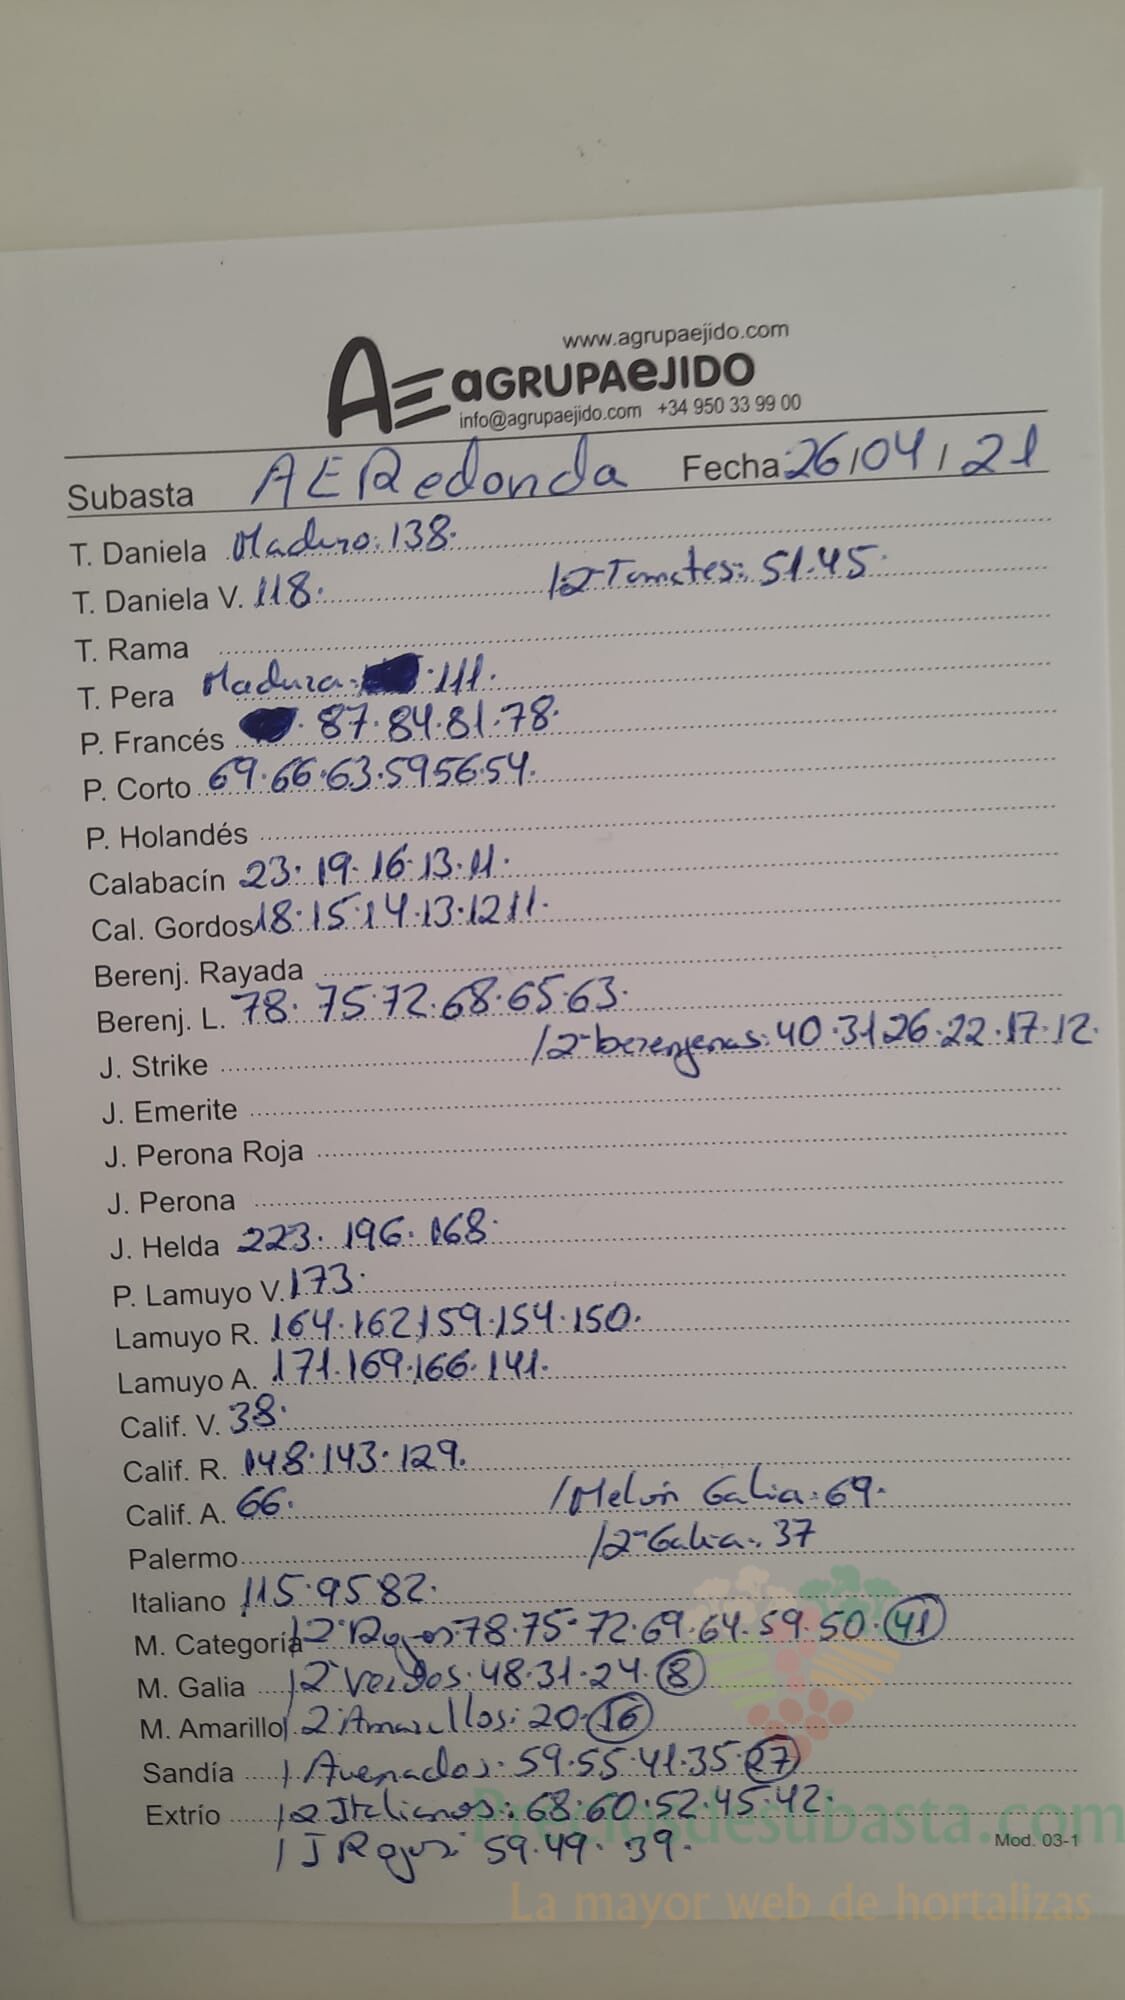 www.agrupaejido.com
AE aGRUPAeJIDO
info@agrupaejido.com +34 950 33 99 00
Subasta AERedonda Fecha 26/04/21
T. Daniela Maduro: 138.
T. Daniela V. 118. /2ªTomates: 51.45.
T. Rama
T. Pera Madura: 111.
P. Francés 87.84.81.78.
P. Corto 69.66.63.59 56.54.
P. Holandés
Calabacín 23.19.16.13.11.
Cal. Gordos 18.15.14.13.12 11.
Berenj. Rayada
Berenj. L. 78.75.72.68.65.63.
J. Strike /2ªberenjenas: 40.31 26.22.17.12.
J. Emerite
J. Perona Roja
J. Perona
J. Helda 223.196.168.
P. Lamuyo V. 173.
Lamuyo R. 164.162 159.154.150.
Lamuyo A. 171.169.166.141.
Calif. V. 38.
Calif. R. 148.143.129.
Calif. A. 66. /Melón Galia: 69.
Palermo /2ªGalia: 37
Italiano 115.95 82.
M. Categoría /2ª Rojos 78.75.72.69.64.59.50.41
M. Galia /2ª Verdes: 48.31.24.8
M. Amarillo /2ª Amarillos: 20.16
Sandía / Avenados: 59.55.41.35.27
Extrío /2 Italianos: 68.60.52.45.42.
/ J Rojos: 59.49.39.
Mod. 03-1
Preciosdesubasta.com
La mayor web de hortalizas